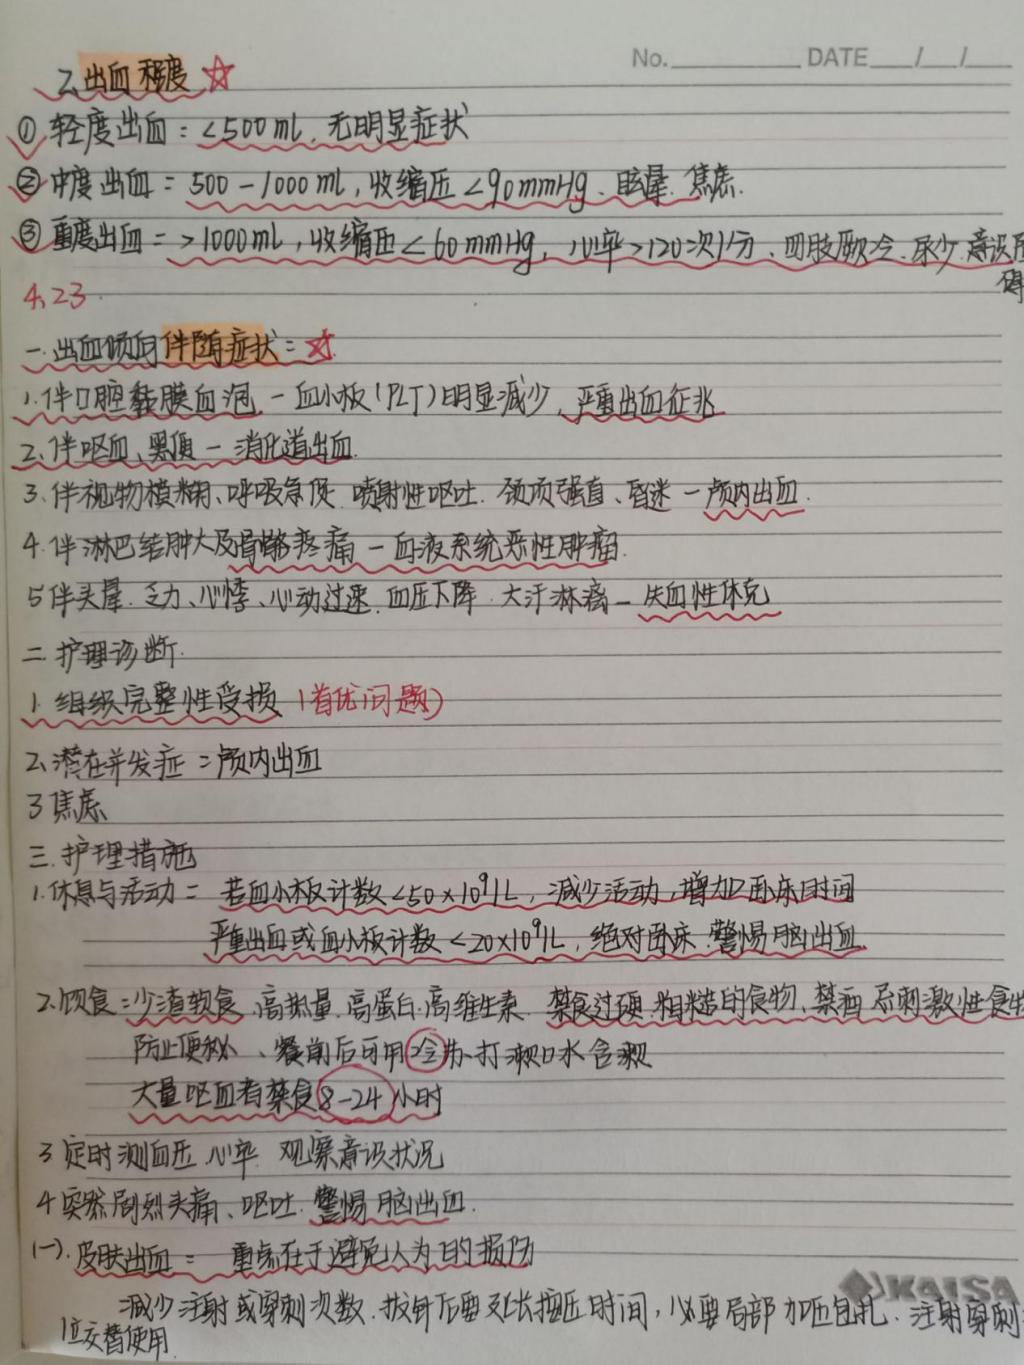 No. DATE / /
2、出血程度 ☆
① 轻度出血：<500ml、无明显症状
② 中度出血：500-1000ml，收缩压<90mmHg、眩晕、焦虑.
③ 重度出血：>1000ml，收缩压<60mmHg，心率>120次/分、四肢厥冷、尿少、意识
4、23
一.出血倾向伴随症状：☆
1.伴口腔黏膜血泡 - 血小板(PLT)明显减少，严重出血征兆
2.伴呕血、黑便 - 消化道出血
3.伴视物模糊、呼吸急促、喷射性呕吐、颈项强直、昏迷 - 颅内出血.
4.伴淋巴结肿大及骨骼疼痛 - 血液系统恶性肿瘤.
5 伴头晕、乏力、心悸、心动过速、血压下降、大汗淋漓 - 失血性休克
二.护理诊断.
1.组织完整性受损（首优问题）
2、潜在并发症：颅内出血
3 焦虑
三.护理措施
1.休息与活动：若血小板计数<50×10⁹/L，减少活动，增加卧床时间
严重出血或血小板计数<20×10⁹/L，绝对卧床、警惕脑出血.
2、饮食：少渣软食、高热量、高蛋白、高维生素、禁食过硬、粗糙的食物、禁酒、忌刺激性食物
防止便秘、餐前后可用冷苏打漱口水含漱
大量呕血者禁食8-24小时
3 定时测血压、心率、观察意识状况
4 突然剧烈头痛、呕吐、警惕脑出血.
(一).皮肤出血： 重点在于避免人为的损伤
减少注射或穿刺次数、拔针后要延长按压时间，必要局部加压包扎、注射穿刺
位交替使用.
KAISA